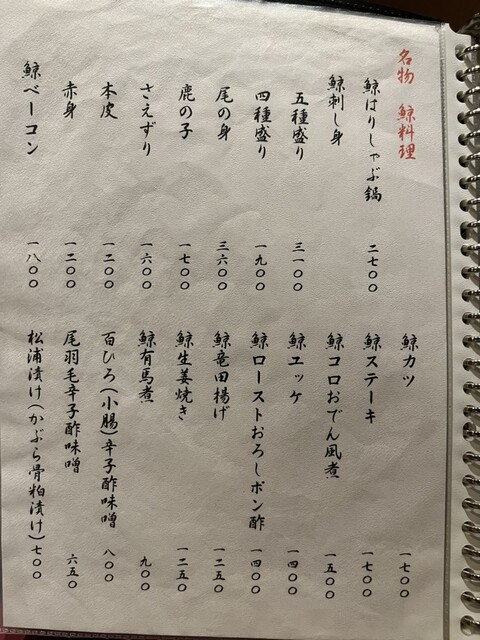 名物 鯨料理
鯨はりしゃぶ鍋 二七〇〇
鯨刺し身
五種盛り 三一〇〇
四種盛り 一九〇〇
尾の身 三六〇〇
鹿の子 一七〇〇
さえずり 一六〇〇
本皮 一二〇〇
赤身 一二〇〇
鯨ベーコン 一八〇〇
鯨カツ 一七〇〇
鯨ステーキ 一七〇〇
鯨コロおでん風煮 一五〇〇
鯨ユッケ 一四〇〇
鯨ローストおろしポン酢 一四〇〇
鯨竜田揚げ 一二五〇
鯨生姜焼き 一二五〇
鯨有馬煮 九〇〇
百ひろ(小腸)辛子酢味噌 八〇〇
尾羽毛辛子酢味噌 六五〇
松浦漬け(かぶら骨粕漬け) 七〇〇